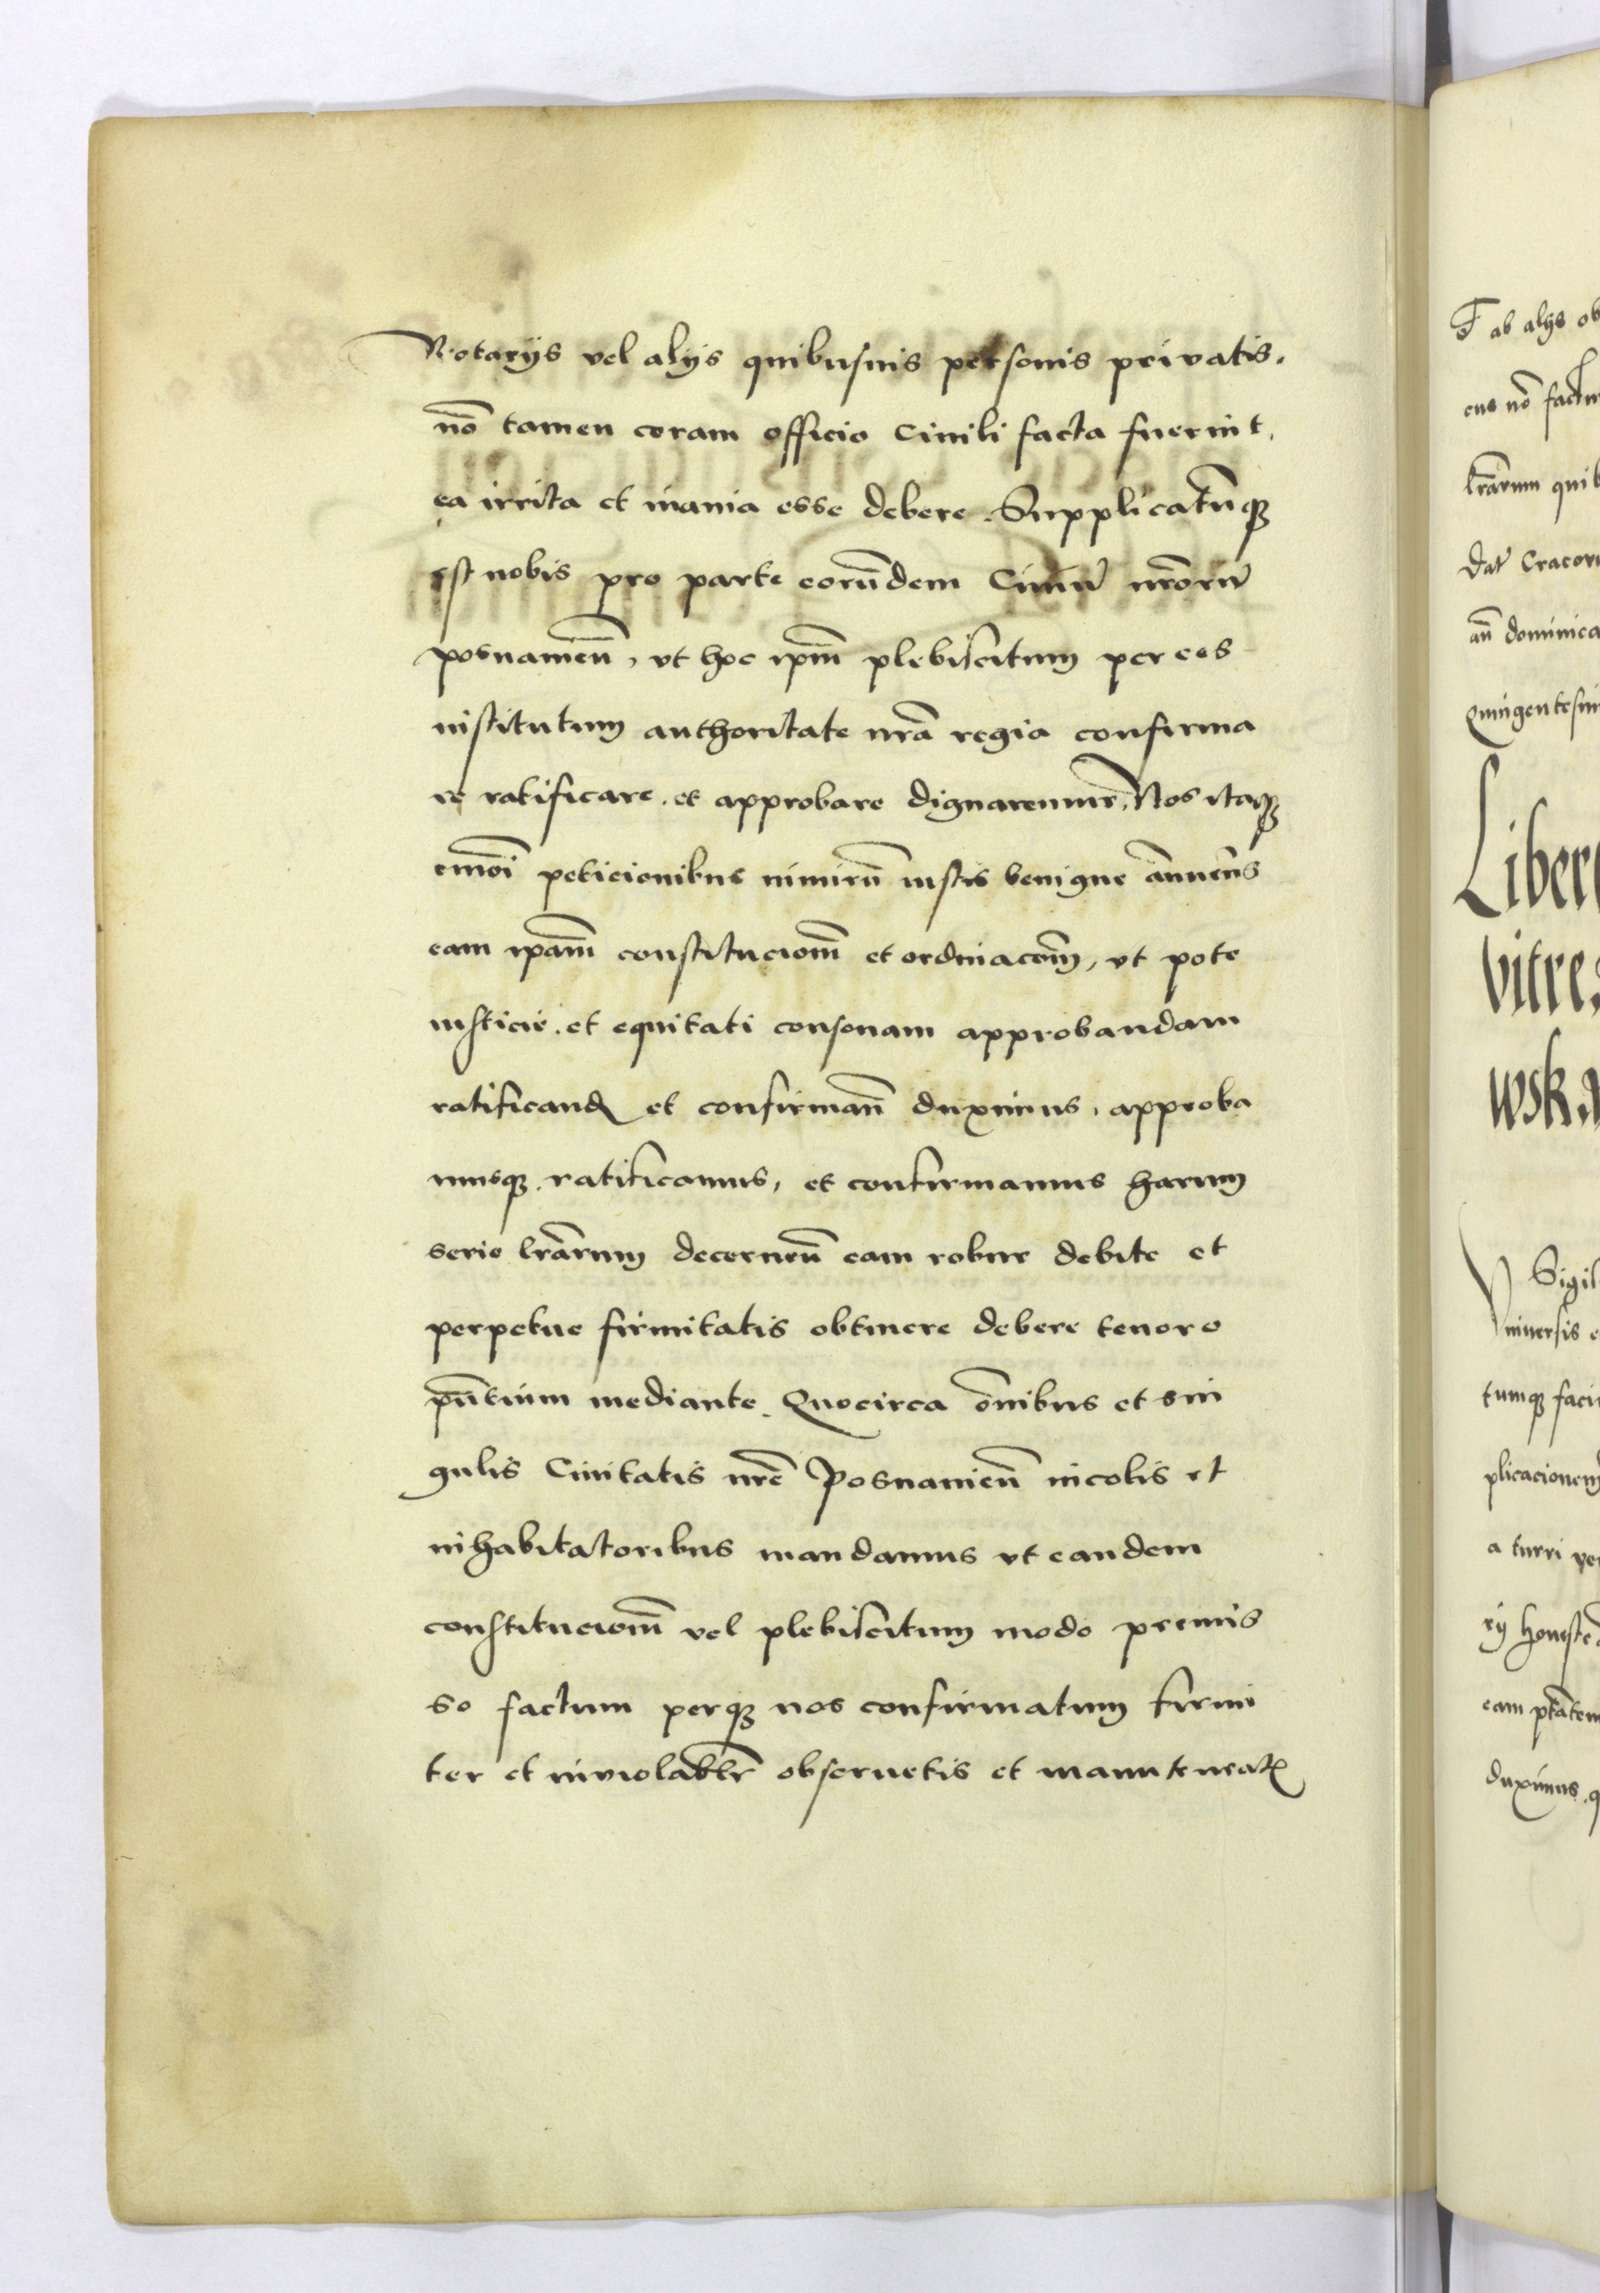 Notarijs vel alijs quibusuis personis privatis.
nō tamen coram officio Ciuili facta fuerint,
ea irrita et inania esse debere. Supplicatūq3
est nobis pro parte eorūdem Ciuiū nr̄orū
posnanien̄, vt hoc ip̄m plebiscitum per eos
institutum authoritate nr̄a regia confirma
re ratificare. et approbare dignaremur. Nos itaq3
peticionibus nimirū iustis benigne ān̄uen̄s
eam ip̄am constitucion̄m et ordinacōem, vt pote
iusticie. et equitati consonam approbandam
ratificand et confirman̄ duximus, approba
musq3 ratificamus, et confirmamus harum
serie lr̄arum decernen̄ eam robur debite et
perpetue firmitatis obtinere debere tenore
pn̄tium mediante. Quocirca ōnibus et sin
gulis Ciuitatis nr̄e Posnanien̄ incolis et
inhabitatoribus mandamus vt eandem
constitucion̄m vel plebiscitum modo premis
so factum perq3 nos confirmatum firmi
ter et inuiolabl̄r obseruetis et manuteneatis
F ab alijs ob
nō factu
lr̄arum quib
Dat̄ Cracou
an̄ dominica
Quingentesim
Liber
vitre
wsk
Sigil
Vniuersis
tumq3 faci
plicacionem
a turri
rij honeste
eam
duximus. q